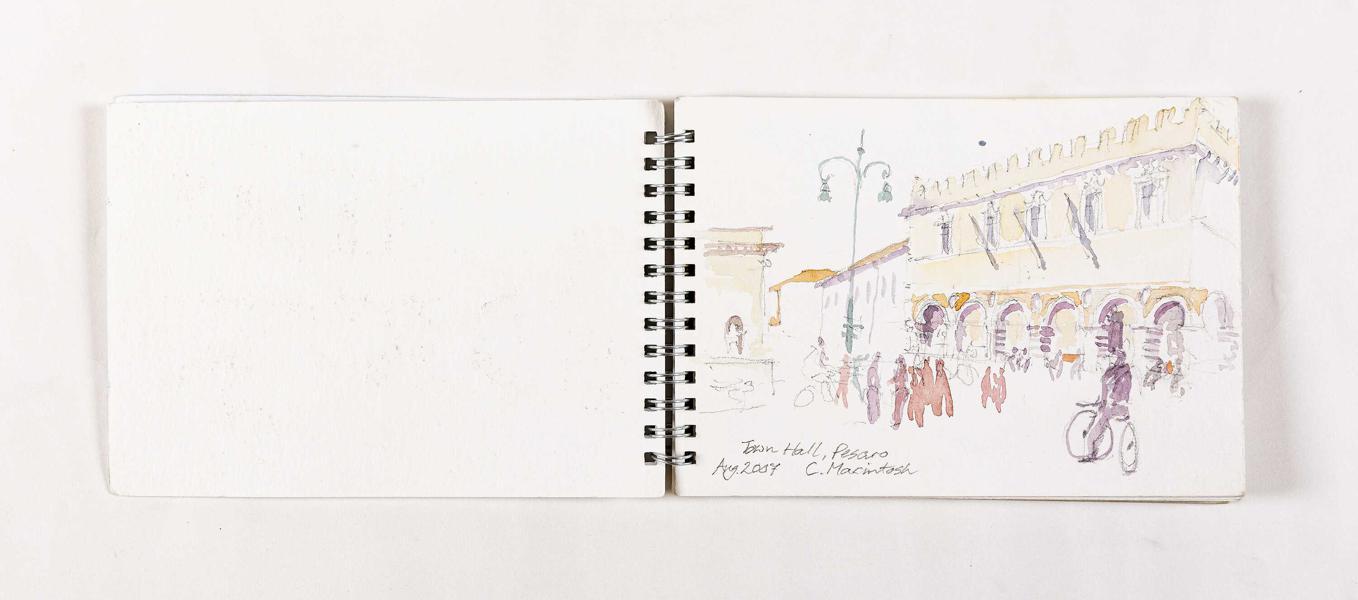 Town Hall, Pesaro
Aug. 2007 C. Macintosh